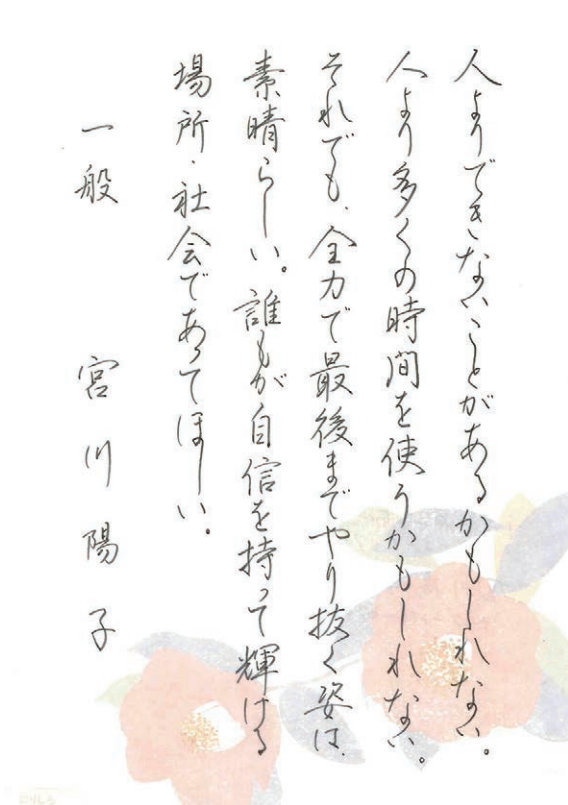 人よりできないことがあるかもしれない。
人より多くの時間を使うかもしれない。
それでも、全力で最後までやり抜く姿は、
素晴らしい。誰もが自信を持って輝ける
場所・社会であってほしい。
一般 宮川陽子